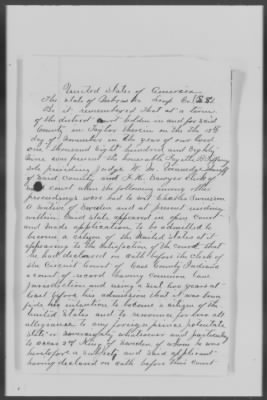 United States of America
The State of Nebraska Loup Co. } S.S.
Be it remembered that at a term
of the district court holden in and for said
County in Taylor therein on the 18th
day of November in the year of our Lord
one thousand Eight hundred and Eighty
nine was present the honorable
sole presiding Judge W. Sheriff
of said County and Clerk of
said court when the following among other
proceedings were had to wit Charles
a native of Sweden and at present residing
within said state appeared in open court
and made application to be admitted to
become a citizen of the United States it
appearing to the satisfaction of the court that
he had declared on oath before the Clerk of
the Circuit Court of Cass County Indiana
a court of record having common law
jurisdiction and using a seal two years at
least before his admission that it was bona
fide his intention to become a citizen of the
United States and to renounce forever all
allegiance to any foreign prince, potentate
state or sovereignty whatever and particularly
to Oscar 2nd King of Sweden of whom he was
heretofore a subject and said applicant
having declared on oath before this court